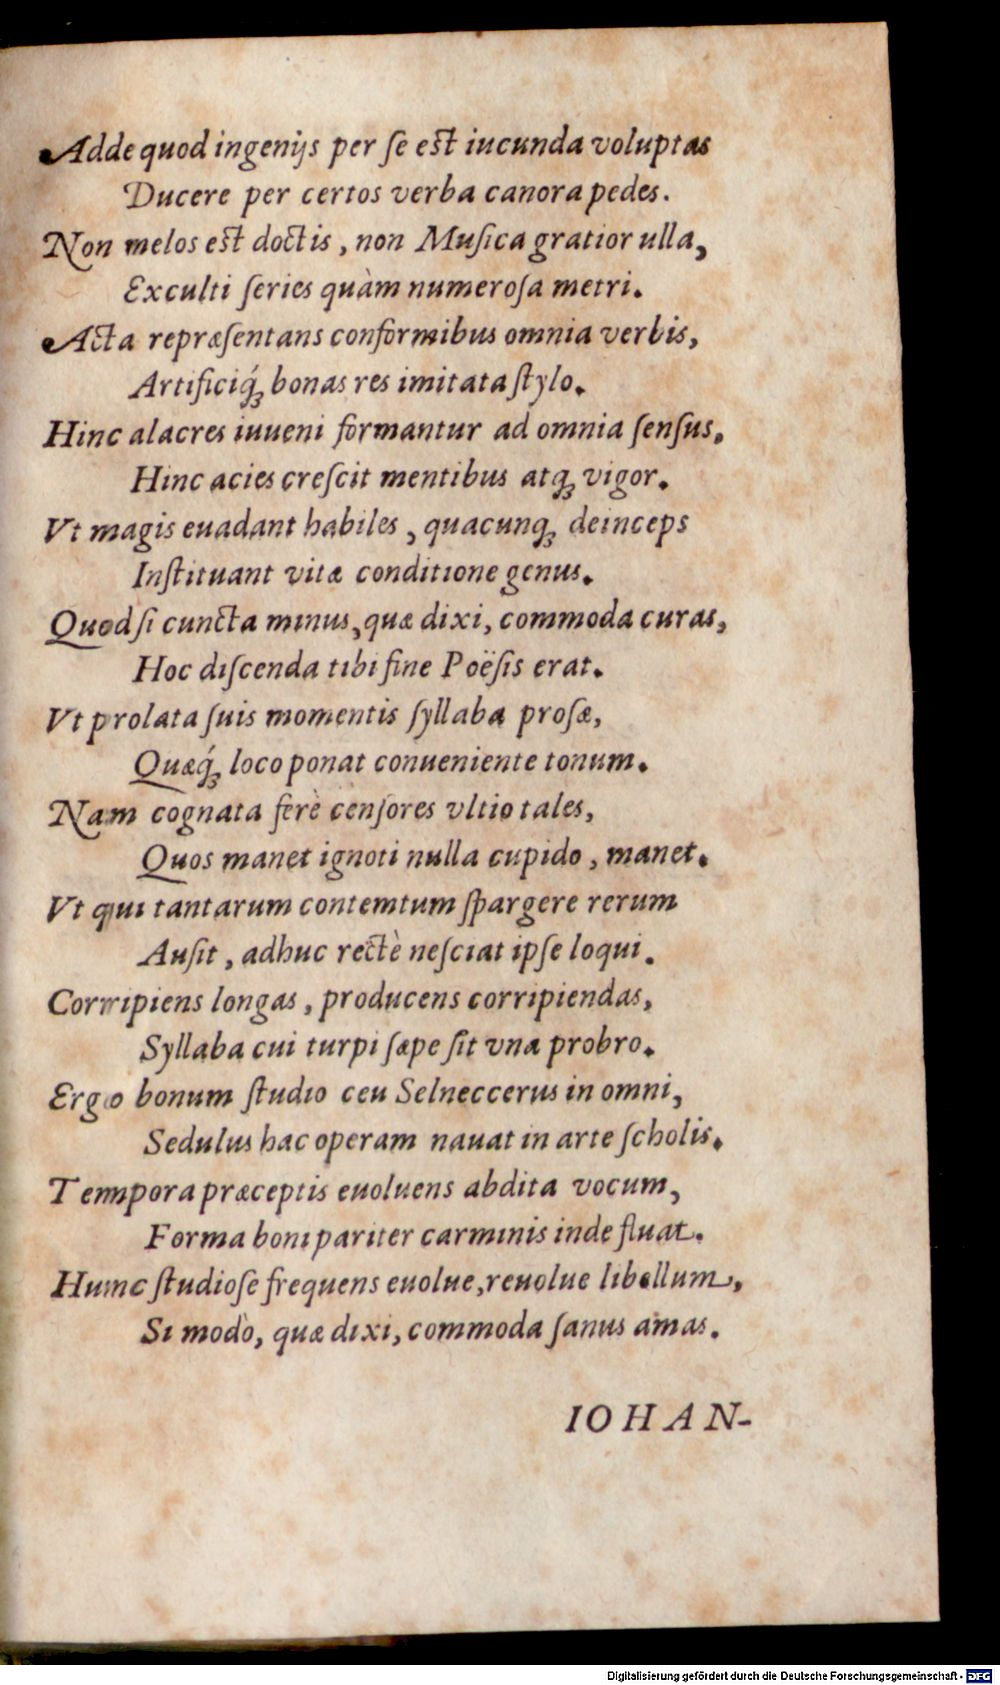 Adde quod ingenijs per ſe eſt iucunda voluptas
Ducere per certos verba canora pedes.
Non melos eſt doctis, non Muſica gratior ulla,
Exculti ſeries quàm numeroſa metri.
Acta repræſentans conformibus omnia verbis,
Artificiq́ꝫ bonas res imitata ſtylo.
Hinc alacres iuueni formantur ad omnia ſenſus,
Hinc acies creſcit mentibus atqꝫ vigor.
Vt magis euadant habiles, quacunqꝫ deinceps
Inſtituant vitæ conditione genus.
Quod ſi cuncta minus, quæ dixi, commoda curas,
Hoc diſcenda tibi fine Poëſis erat.
Vt prolata ſuis momentis ſyllaba proſæ,
Quæq́ꝫ loco ponat conueniente tonum.
Nam cognata ferè cenſores vltio tales,
Quos manet ignoti nulla cupido, manet.
Vt qui tantarum contemtum ſpargere rerum
Auſit, adhuc rectè neſciat ipſe loqui.
Corripiens longas, producens corripiendas,
Syllaba cui turpi ſæpe ſit vna probro.
Ergo bonum ſtudio ceu Selneccerus in omni,
Sedulus hac operam nauat in arte ſcholis.
Tempora præceptis euoluens abdita vocum,
Forma boni pariter carminis inde fluat.
Hunc ſtudioſe frequens euolue, reuolue libellum,
Si modò, quæ dixi, commoda ſanus amas.
IOHAN-
Digitalisierung gefördert durch die Deutsche Forschungsgemeinschaft - DFG